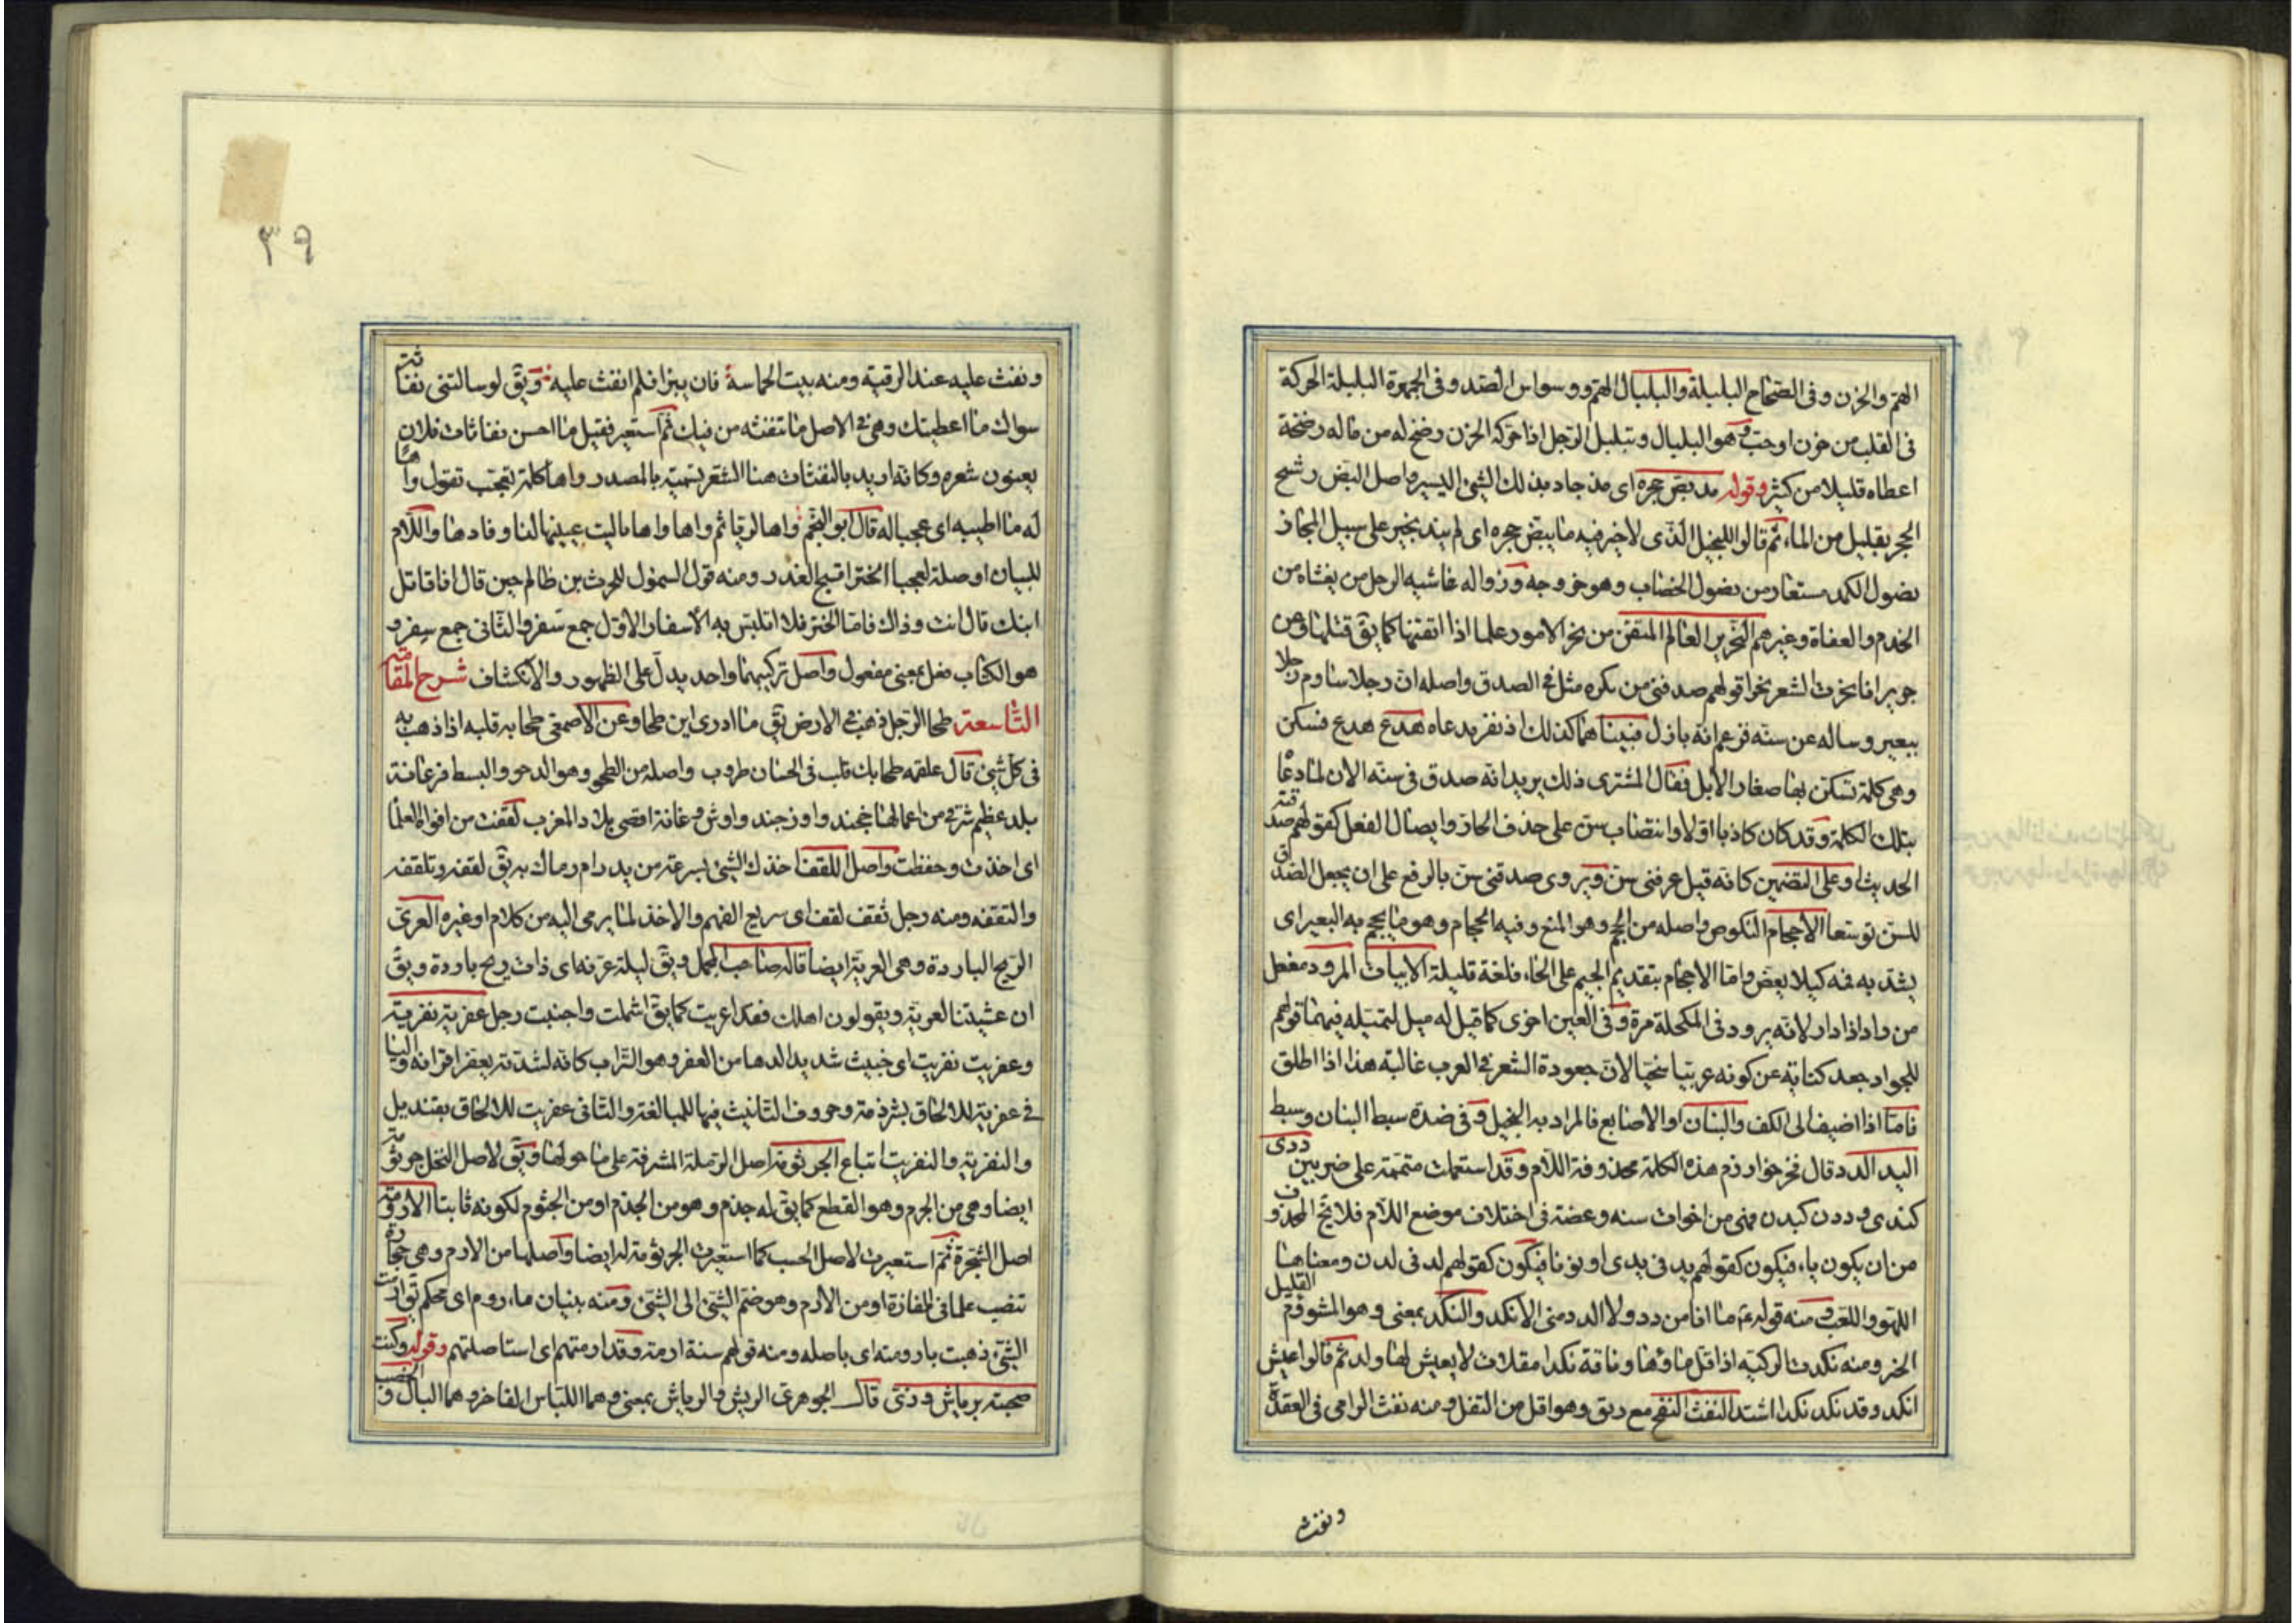 الهم والحزن وفى الصحاح البلبلة والبلبال الهم ووسواس الصدر وفى الجمهرة البلبلة الحركة
فى القلب من حزن او حب وهو البلبال وتبلبل الرجل اذا حركه الحزن رضخ له من ماله رضخة
اعطاه قليلا من كثير وقوله مذ بض حجره اى مذ جاد بذلك الشئ اليسير واصل البض رشح
الحجر بقليل من الماء ثم قالوا للبخيل الذى لاخير فيه ما يبض حجره اى لم يند بخير على سبيل المجاز
نصول الكمد مستعار من نصول الخضاب وهو خروجه وزواله غاشيه الرجل من يغشاه من
الخدم والعفاة وغيرهم النحرير العالم المتقن من نحر الامور علما اذا اتقنها كما يق قتلها وعن
جويرا فانحرت الشعر نحرا قولهم صدقنى سن بكره مثل فى الصدق واصله ان رجلا ساوم رجلا
ببعير وساله عن سنه فزعم انه بازل فبينا هما كذلك اذ نفر فدعاه هدع هدع فسكن
وهى كلمة تسكن بها صغار الابل فقال المشترى ذلك يريد انه صدق فى سنه الان لما دعا
بتلك الكلمة وقد كان كاذبا اولا وانتصاب سن على حذف الجار وايصال الفعل كقولهم صدقته
الحديث او على التضمين كانه قيل عرفنى سن ويروى صدقنى سن بالرفع على ان يجعل الصدق
للسن توسعا الاحجام النكوص واصله من الحجم وهو المنع وفيه الحجام وهو ما يحجم به البعير اى
يشد به فمه كيلا يعض واما الاجحام بتقديم الجيم على الحاء فلغة قليلة الابيات المرود مفعل
من راد اذا دار لانه يرود فى المكحلة مرة وفى العين اخرى كما قيل له ميل لتميله فيهما قولهم
للجواد جعد كناية عن كونه عربيا سخيا لان جعودة الشعر فى العرب غالبة هذا اذا اطلق
فاما اذا اضيف الى الكف والبنان او الاصابع فالمراد به البخيل وفى ضده سبط البنان وسبط
اليد الدد قال فخر خوارزم هذه الكلمة محذوفة اللام وقد استعملت متممة على ضربين ددى
كندى وددن كبدن فهى من اخوات سنه وعضة فى اختلاف موضع اللام فلا يخ المحذوف
من ان يكون ياء فيكون كقولهم يد فى يدى او نونا فيكون كقولهم لد فى لدن ومعناها
اللهو واللعب ومنه قوله ع م ما انا من دد ولا الدد منى الانكد والنكد بمعنى وهو المشوؤم القليل
الخير ومنه نكدت الركية اذا قل ماؤها وناقة نكدا مقلات لا يعيش لها ولد ثم قالوا عيش
انكد وقد نكد نكدا اشتد النفث النفخ مع ريق وهو اقل من التفل ومنه نفث الراقى فى العقدة
ونفث
٣٩
ونفث عليه عند الرقية ومنه بيت الحماسة فان يبرا فلم انفث عليه ويق لو سالتنى نفاثة
سواك ما اعطيتك وهى فى الاصل ما تنفثه من فيك ثم استعير فقيل ما احسن نفاثات فلان
يعنون شعره وكانه اريد بالنفثات هنا الشعر تسمية بالمصدر واها كلمة تعجب تقول واها
له ما اطيبه اى عجبا له قال ابو النجم واها لريا ثم واها واها ياليت عينيها لنا وفاها واللام
للبيان او صلة لعجبا الختر اقبح الغدر ومنه قول السمؤل للحرث بن ظالم حين قال انا قاتل
ابنك قال انت وذاك فاما الختر فلا اتلبس به الاسفار الاول جمع سفر والثانى جمع سِفر و
هو الكتاب فعل بمعنى مفعول واصل تركيبهما واحد يدل على الظهور والانكشاف شرح المقامة
التاسعة طحا الرجل ذهب فى الارض يق ما ادرى اين طحا وعن الاصمعى طحا به قلبه اذا ذهب به
فى كل شئ قال علقمه طحا بك قلب فى الحسان طروب واصله من الطحو وهو الدحو والبسط فرغانة
بلد عظيم شرقى من اعمالها خجند واوزجند واوش وغانة اقصى بلاد المغرب لقفت من افواه العلما
اى اخذت وحفظت واصل اللقف اخذك الشئ بسرعة من يد رام رماك به يق لقفه وتلقفه
والتقفه ومنه رجل ثقف لقف اى سريع الفهم والاخذ لما يرمى اليه من كلام او غيره العرى
الريح الباردة وهى العرية ايضا قاله صاحب المجمل ويق ليلة عرية اى ذات ريح باردة ويق
ان عشيتنا لعرية ويقولون اهلك فقد اعريت كما يق اشملت واجنبت رجل عفرية نفرية
وعفريت نفريت اى خبيث شديد الدها من العفر وهو التراب كانه لشدته يعفر اقرانه واليا
فى عفرية للالحاق بشرذمة وحروف التانيث فيها للمبالغة والثانى عفريت للالحاق بقنديل
والنفرية والنفريت اتباع الجرثومة اصل الرملة المشرفة على ما حولها ويق لاصل النخل جرثومة
ايضا وهى من الجرم وهو القطع كما يق له جذم وهو من الجذم او من الجثوم لكونه ثابتا الارومة
اصل الشجرة ثم استعيرت لاصل الحسب كما استعيرت الجرثومة له ايضا واصلها من الارم وهى حجارة
تنصب علما فى المفازة او من الارم وهو ضم الشئ الى الشئ ومنه بنيان ماروم اى محكم توارت
الشئ ذهبت بارومته اى باصله ومنه قولهم سنة ارمة وقد ارمتهم اى استاصلتهم وقوله وكنت
صحبته برياش وزى قال الجوهرى الريش والرياش بمعنى وهما اللباس الفاخر وهما المال والخصب